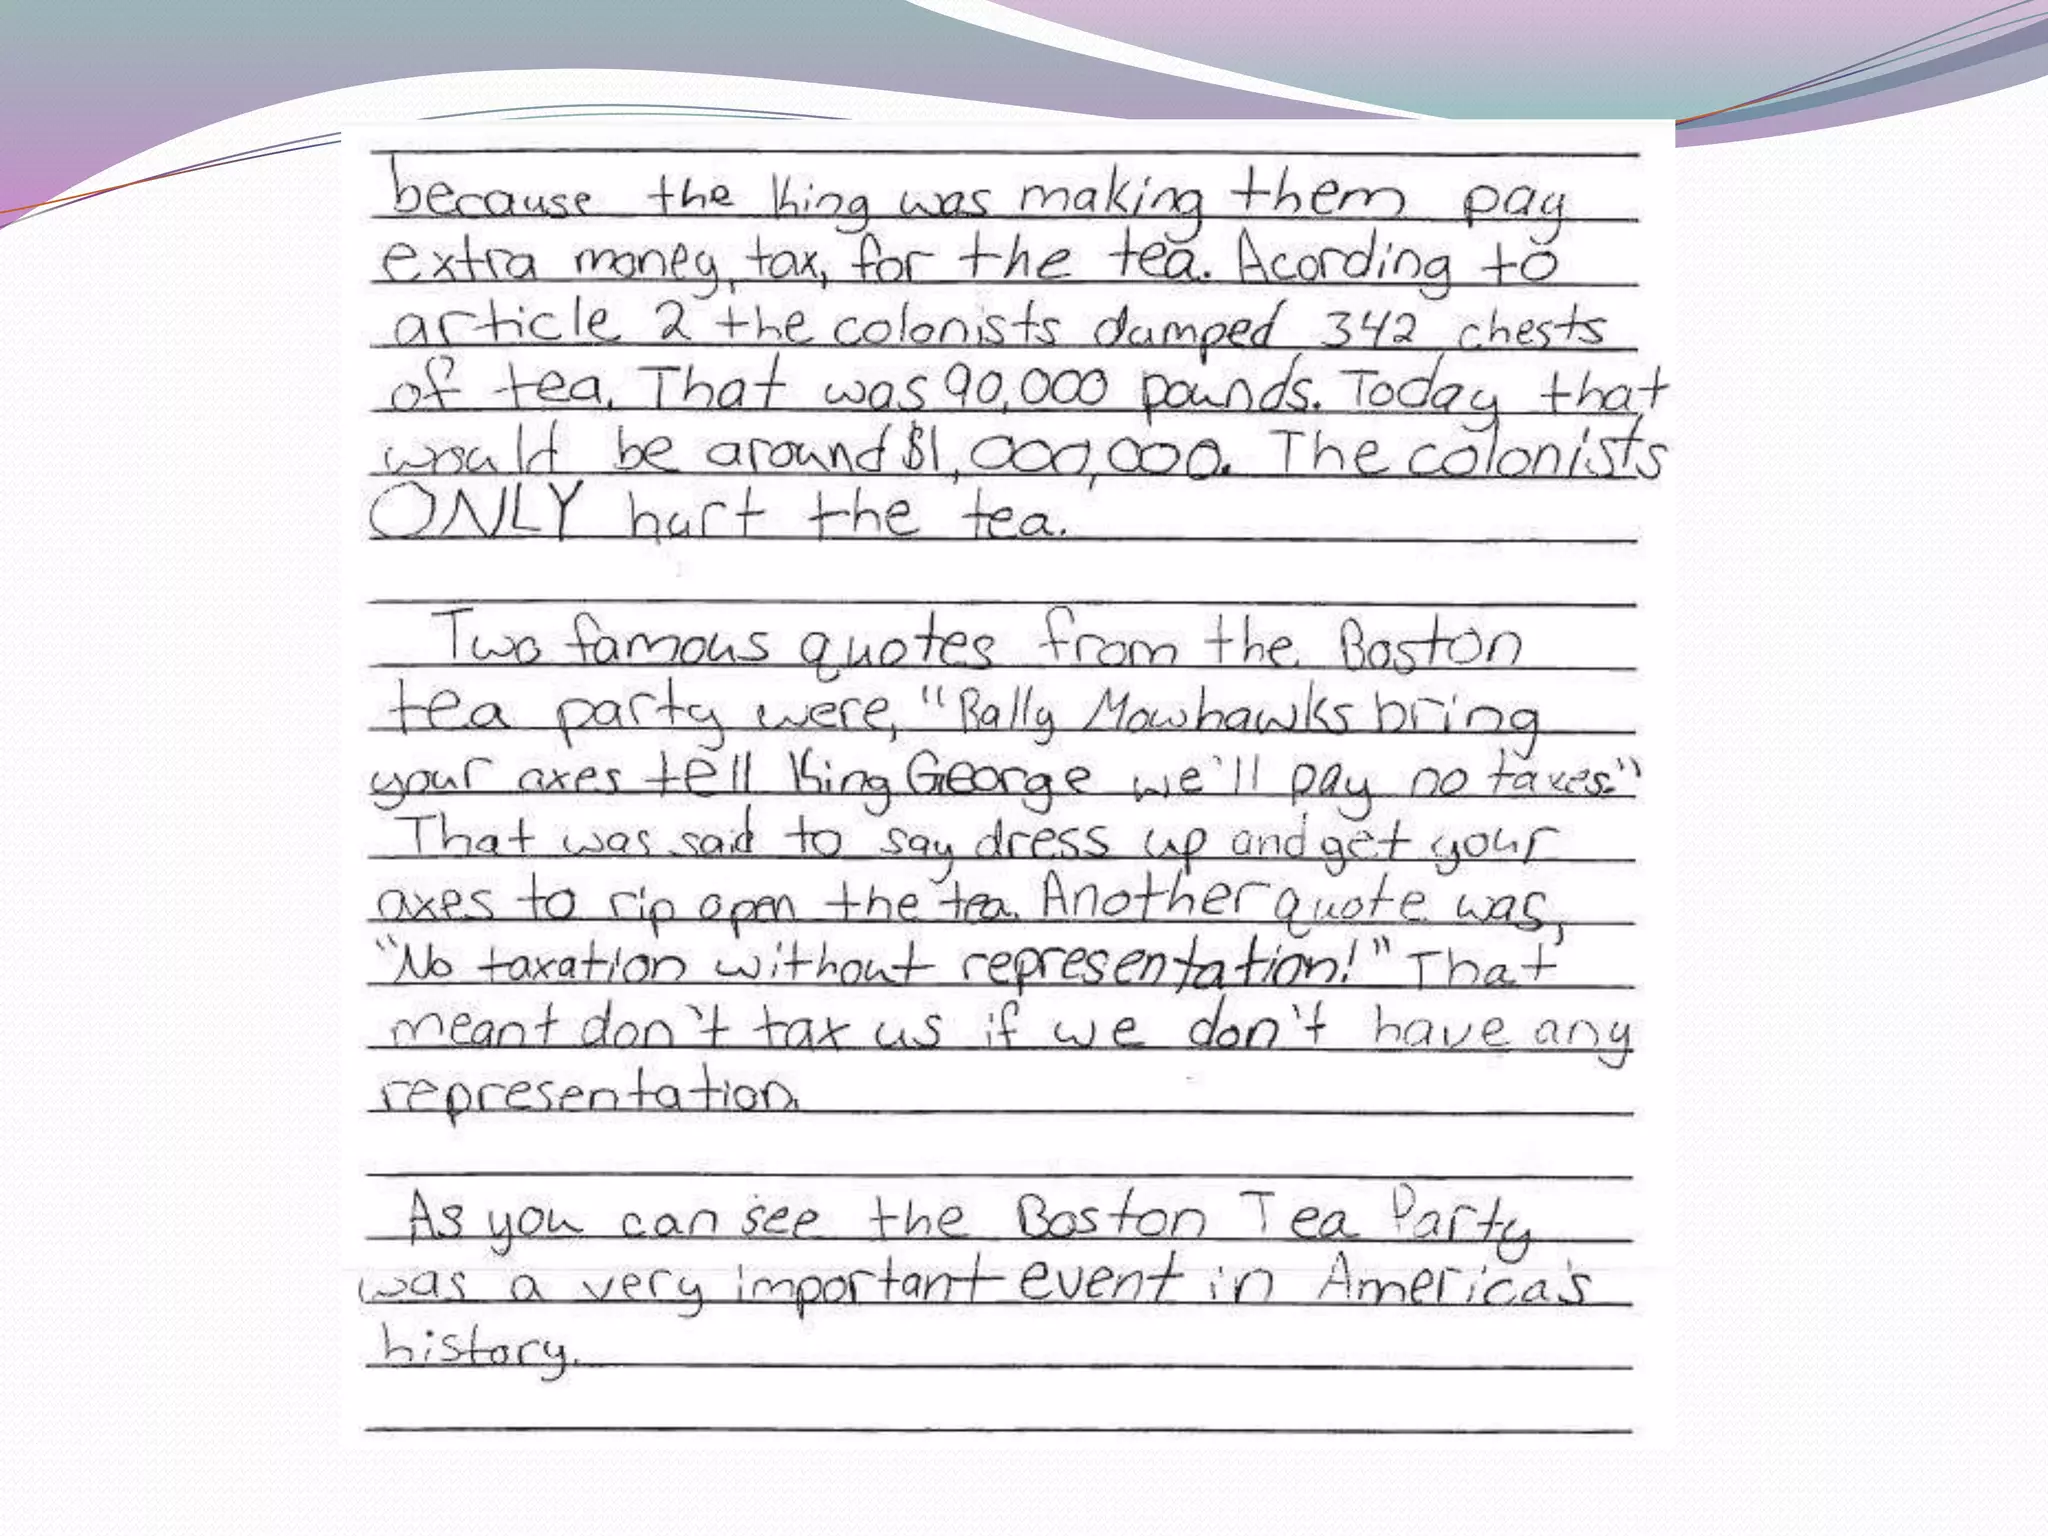 because the King was making them pay
extra money, tax, for the tea. Acording to
article 2 the colonists dumped 342 chests
of tea. That was 90,000 pounds. Today that
would be around $1,000,000. The colonists
ONLY hurt the tea.
Two famous quotes from the Boston
tea party were, "Rally Mowhawks bring
your axes tell King George we'll pay no taxes."
That was said to say dress up and get your
axes to rip open the tea. Another quote was,
"No taxation without representation!" That
meant don't tax us if we don't have any
representation.
As you can see the Boston Tea Party
was a very important event in America's
history.